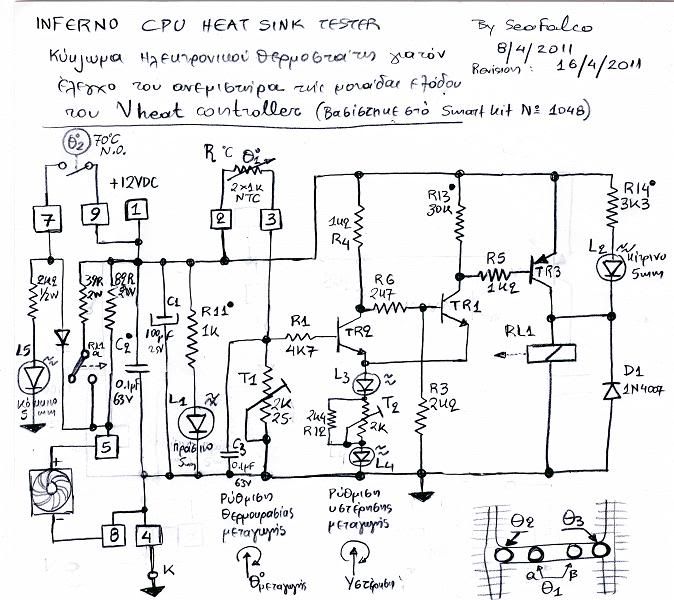 INFERNO CPU HEAT SINK TESTER
By SeaFalco
8/4/2011
Revision: 16/4/2011
Κύκλωμα Ηλεκτρονικού θερμοστάτης για τόν
έλεγχο του ανεμιστήρα της μονάδας ελόδου
του Vheat controller (Βασίστηκε στό Smart kit Nº 1048)
θ°2 70°C
N.O.
+12VDC
7
9
1
R °C θ°1
2×1K
NTC
2
3
2K2
1/2W
39R
2W
82R
2W
RL1
a
C2
0.1μF
63V
C1
100μF
25V
R11
1K
L1
Πράσινο
5mm
L5
Κόκκινο
5mm
R1
4K7
1K2
R4
R6
2K7
TR2
TR1
R13
30K
R5
1KΩ
TR3
RL1
R14
3K3
L2
Κίτρινο
5mm
D1
1N4007
T1
2K
25.
C3
0.1μF
63V
L3
2K4
R12
T2
2K
L4
R3
2K2
5
8
4
K
+
−
Ρύθμιση
θερμοκρασίας
μεταγωγής
θ° μεταγωγής
Ρύθμιση
υστέρησης
μεταγωγής
Υστέρηση
θ2
θ3
α
β
θ1